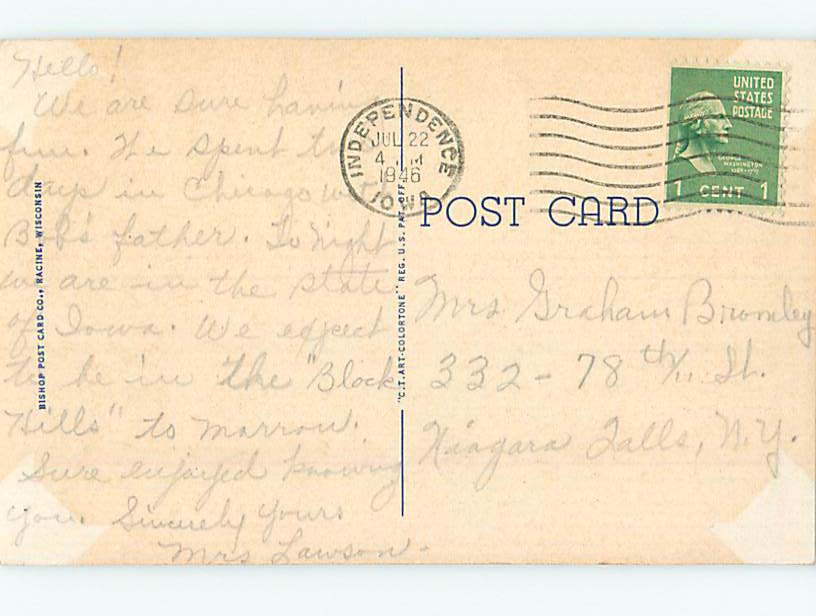 Hello!
We are sure having
fun. We spent two
days in Chicago with
Bob's father. To night
we are in the state
of Iowa. We expect
to be in the "Black
Hills" to morrow.
Sure enjoyed knowing
you. Sincerely Yours
Mrs Lawson-
BISHOP POST CARD CO., RACINE, WISCONSIN
"C.T.ART-COLORTONE" REG. U.S. PAT. OFF.
INDEPENDENCE
JUL 22
4 M
1946
IOWA
UNITED
STATES
POSTAGE
GEORGE
WASHINGTON
1 CENT 1
POST CARD
Mrs Graham Bromley
332 - 78th St.
Niagara Falls, N.Y.